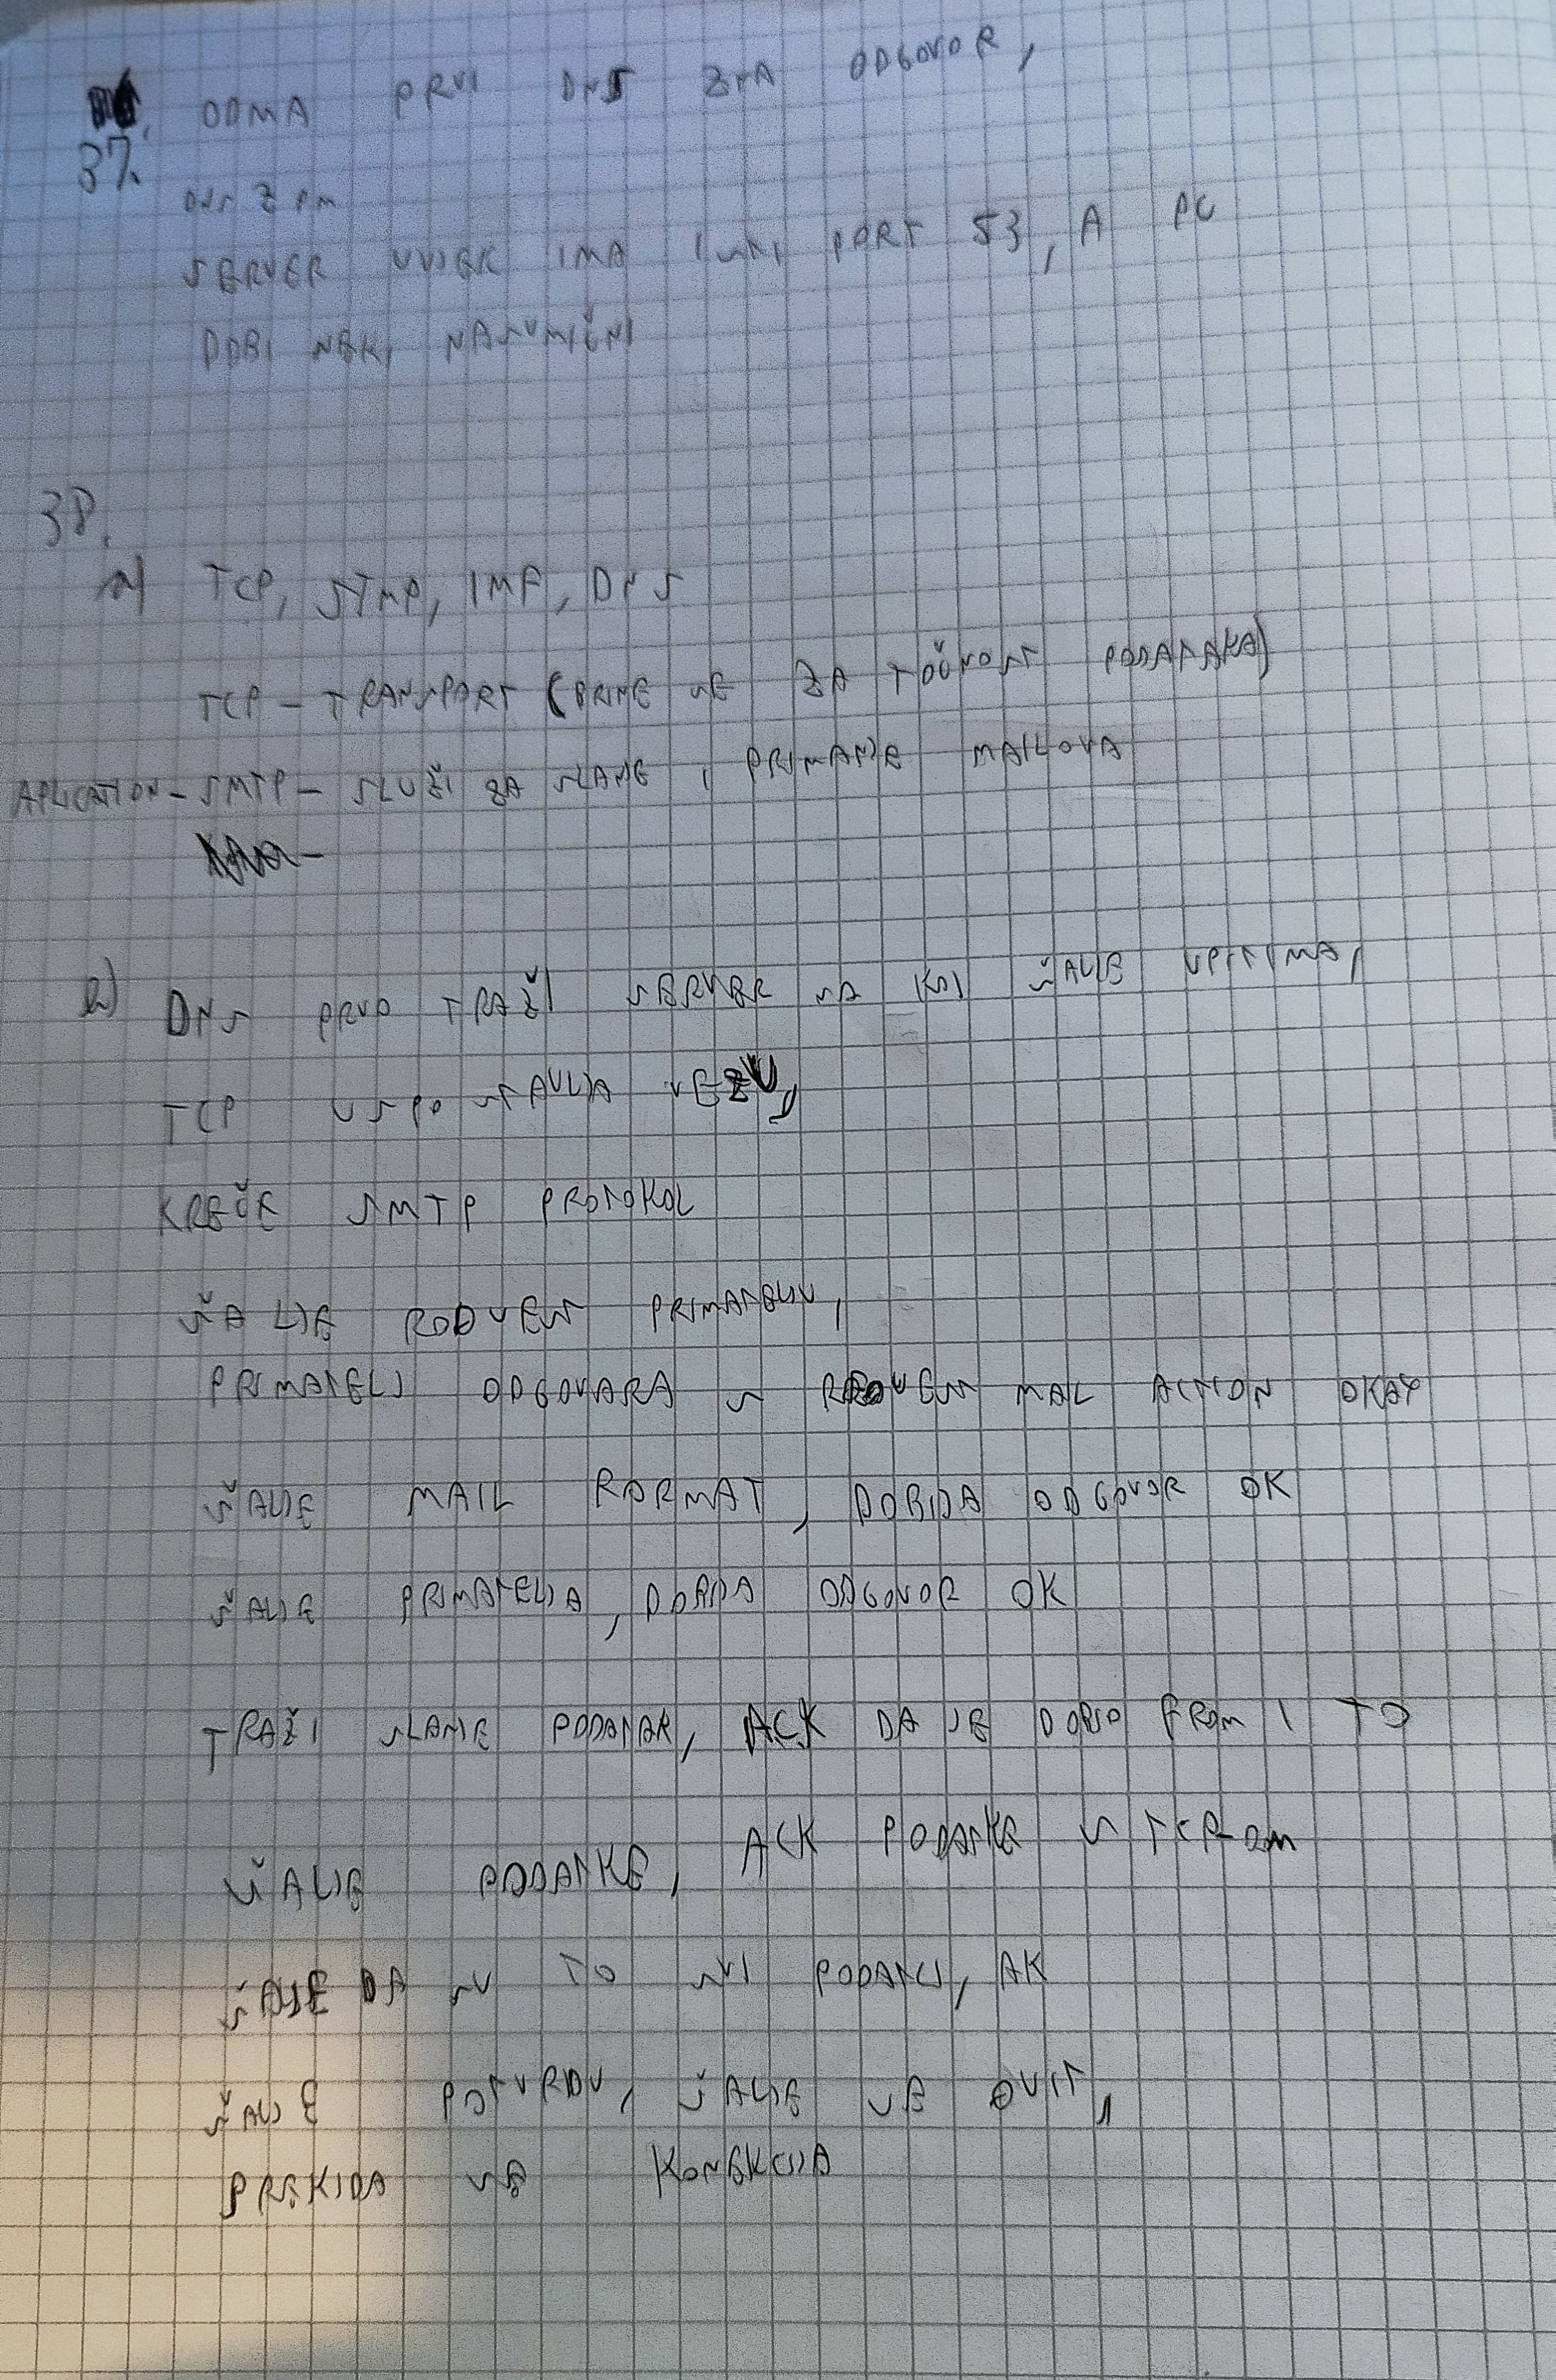 37. ODMA PRVI DNS ZNA ODGOVOR,
SERVER UVIJEK IMA ISTI PORT 53, A PC
DOBI NEKI NASUMIČNI
38.
a) TCP, STMP, IMF, DNS
TCP - TRANSPORT (BRINE SE ZA TOČNOST PODATAKA)
APLICATION - SMTP - SLUŽI ZA SLANJE I PRIMANJE MAILOVA
b) DNS PRVO TRAŽI SERVER NA KOJI ŠALJE
TCP USPOSTAVLJA VEZU,
KREĆE SMTP PROTOKOL
ŠALJE PRIMATELJU,
PRIMATELJ ODGOVARA S MAIL ACTION OKAY
ŠALJE MAIL FORMAT, DOBIJA ODGOVOR OK
ŠALJE PRIMATELJA, DOBIJA ODGOVOR OK
TRAŽI SLANJE PODATAK, ACK DA JE DOBIO FROM I TO
ŠALJE PODATKE, ACK PODATKE S TCP-OM
ŠALJE DA SU TO SVI PODATCI, AK
ŠALJE POTVRDU, ŠALJE SE QUIT,
PREKIDA SE KONEKCIJA